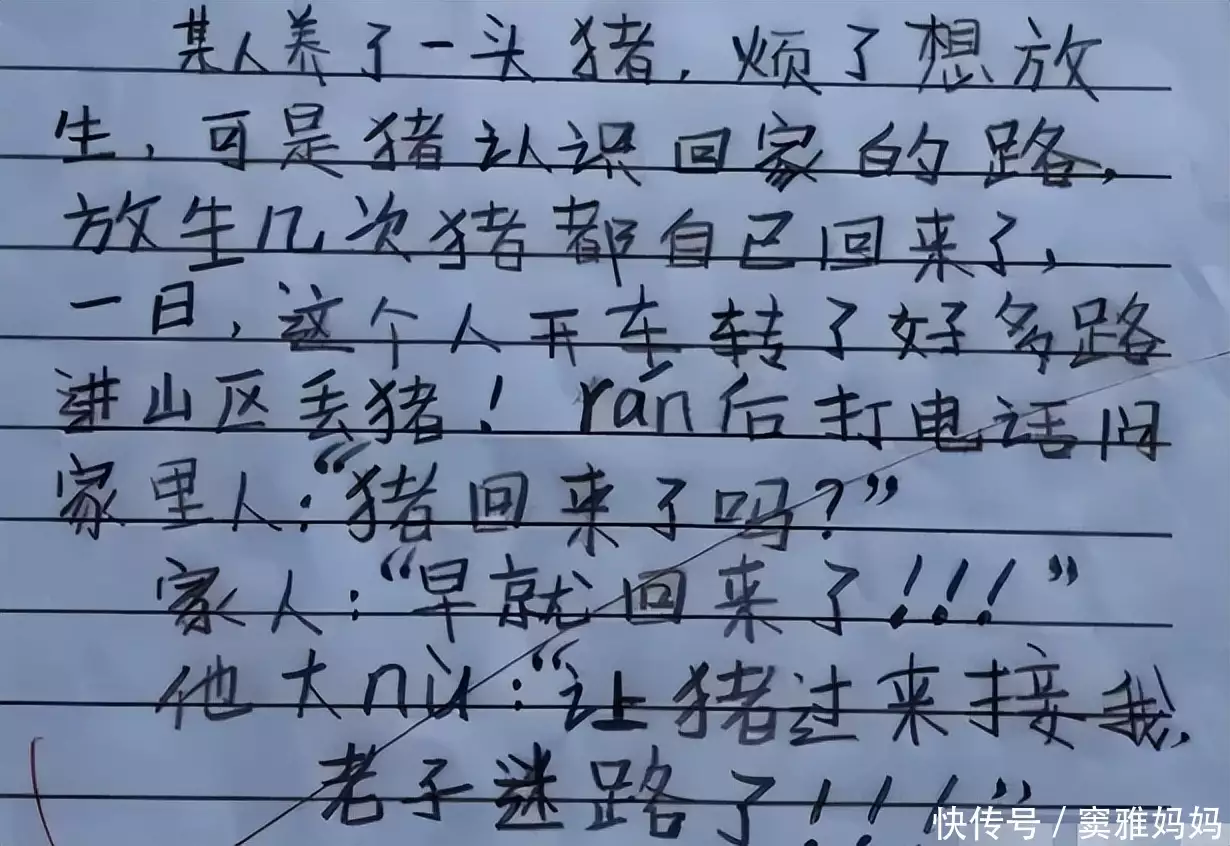 某人养了一头猪，烦了想放
生，可是猪认识回家的路，
放生几次猪都自己回来了，
一日，这个人开车转了好多路
进山区丢猪！rán后打电话问
家里人：“猪回来了吗？”
家人：“早就回来了！！！”
他大nù：“让猪过来接我，
老子谜路了！！！”
快传号 / 窦雅妈妈